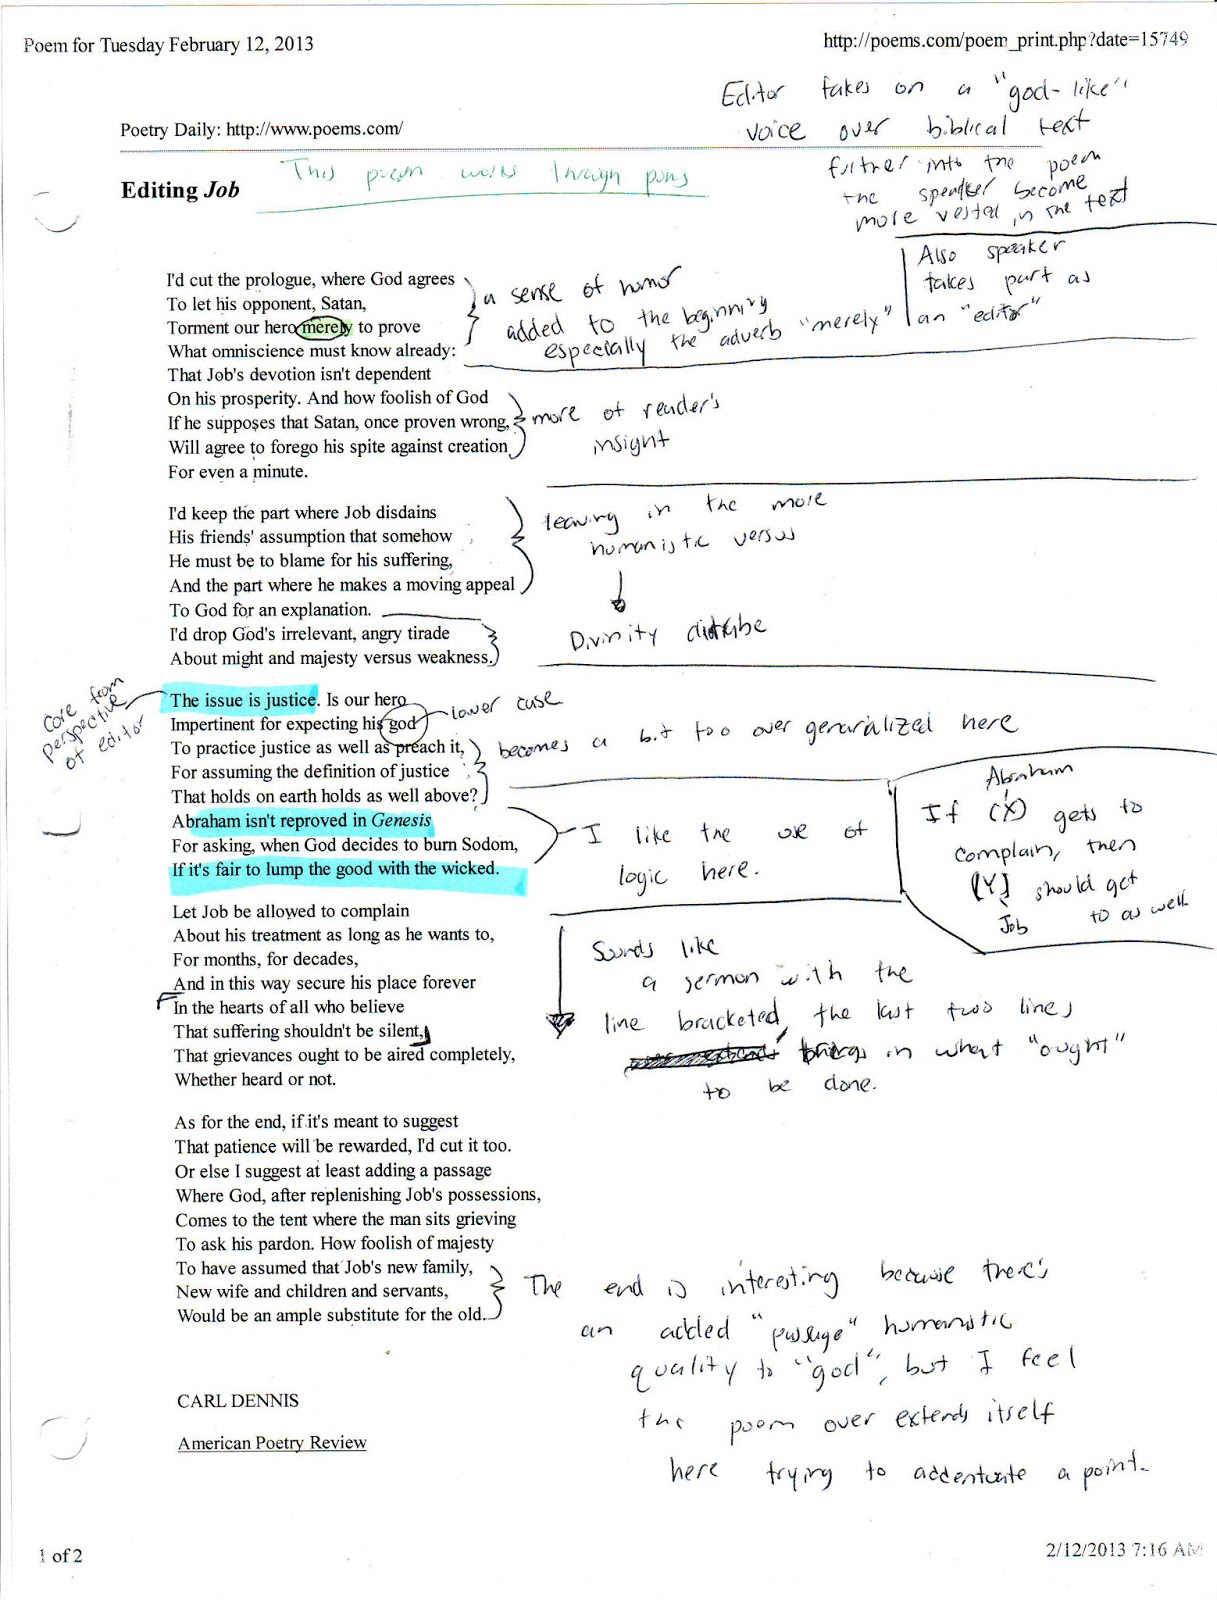 Poem for Tuesday February 12, 2013
http://poems.com/poem_print.php?date=15749
Editor takes on a "god-like"
voice over biblical text
further into the poem
the speaker become
more vested in the text
Poetry Daily: http://www.poems.com/
This poem works through puns
Editing Job
Also speaker
takes part as
an "editor"
I'd cut the prologue, where God agrees
To let his opponent, Satan,
Torment our hero merely to prove
What omniscience must know already:
That Job's devotion isn't dependent
On his prosperity. And how foolish of God
If he supposes that Satan, once proven wrong,
Will agree to forego his spite against creation
For even a minute.
a sense of humor
added to the beginning
especially the adverb "merely"
more of reader's
insight
I'd keep the part where Job disdains
His friends' assumption that somehow
He must be to blame for his suffering,
And the part where he makes a moving appeal
To God for an explanation.
I'd drop God's irrelevant, angry tirade
About might and majesty versus weakness.
leaving in the more
humanistic versus
Divinity
Core from
perspective
of editor
The issue is justice. Is our hero
Impertinent for expecting his god
To practice justice as well as preach it,
For assuming the definition of justice
That holds on earth holds as well above?
Abraham isn't reproved in Genesis
For asking, when God decides to burn Sodom,
If it's fair to lump the good with the wicked.
lower case
becomes a bit too over generalized here
I like the use of
logic here.
Abraham
If (X) gets to
complain, then
[Y] should get
Job to as well.
Let Job be allowed to complain
About his treatment as long as he wants to,
For months, for decades,
And in this way secure his place forever
In the hearts of all who believe
That suffering shouldn't be silent,
That grievances ought to be aired completely,
Whether heard or not.
Sounds like
a sermon with the
line bracketed, the last two lines
brings in what "ought"
to be done.
As for the end, if it's meant to suggest
That patience will be rewarded, I'd cut it too.
Or else I suggest at least adding a passage
Where God, after replenishing Job's possessions,
Comes to the tent where the man sits grieving
To ask his pardon. How foolish of majesty
To have assumed that Job's new family,
New wife and children and servants,
Would be an ample substitute for the old.
The end is interesting because there's
an added "passage" humanistic
quality to "god", but I feel
the poem over extends itself
here trying to addentuate a point.
CARL DENNIS
American Poetry Review
1 of 2
2/12/2013 7:16 AM